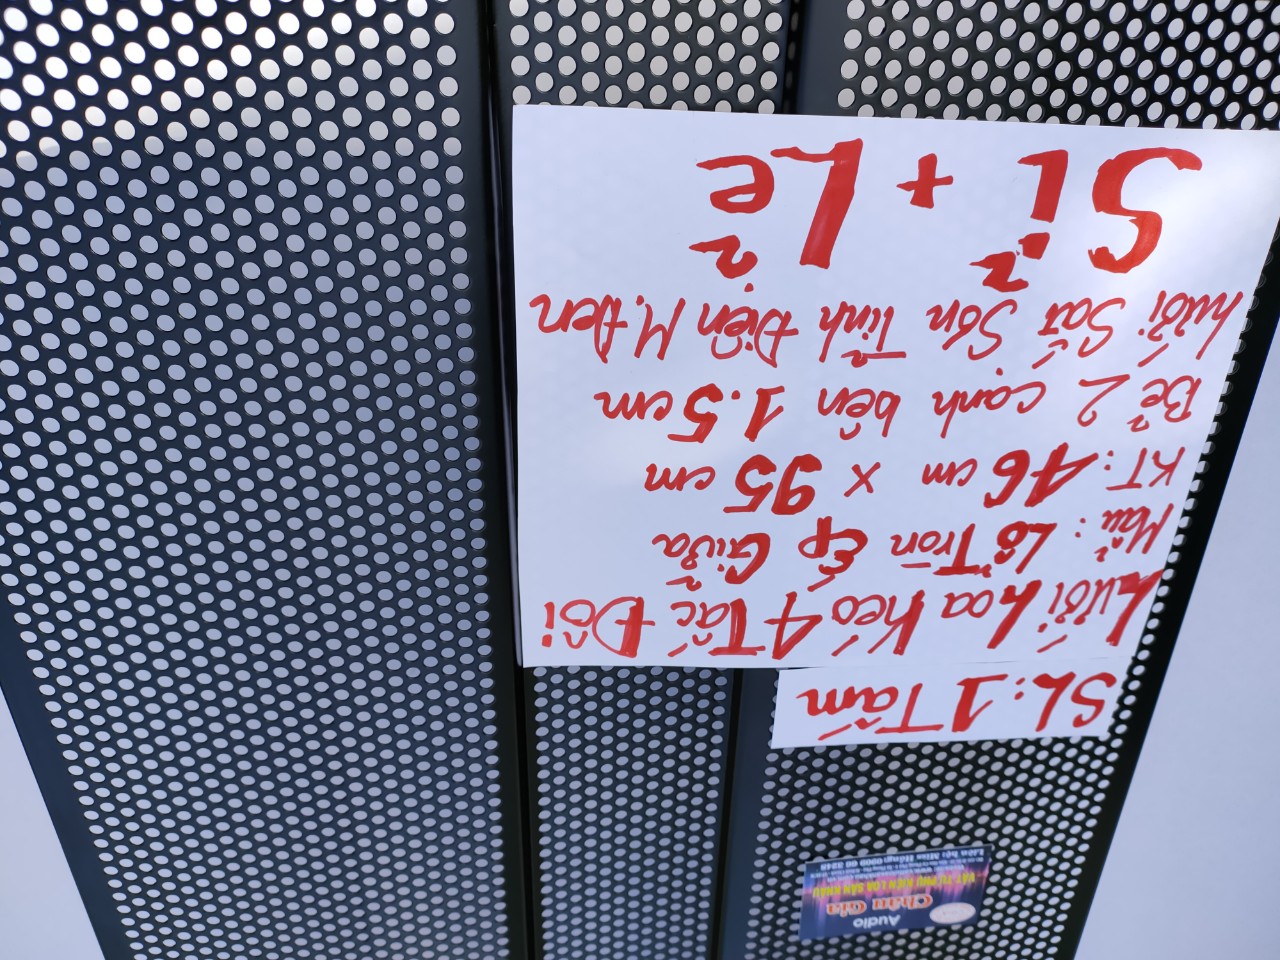 Audio
Châu Gia
VẬT TƯ PHỤ KIỆN LOA SÂN KHẤU
SL: 1 Tấm
Lưới Loa Kéo 4 Tấc Đôi
Mẫu: Lỗ Tròn Ép Giữa
KT: 46 cm x 95 cm
Bẻ 2 cạnh bên 1.5 cm
lưới Sắt Sơn Tĩnh Điện M.Đen
Sỉ + Lẻ